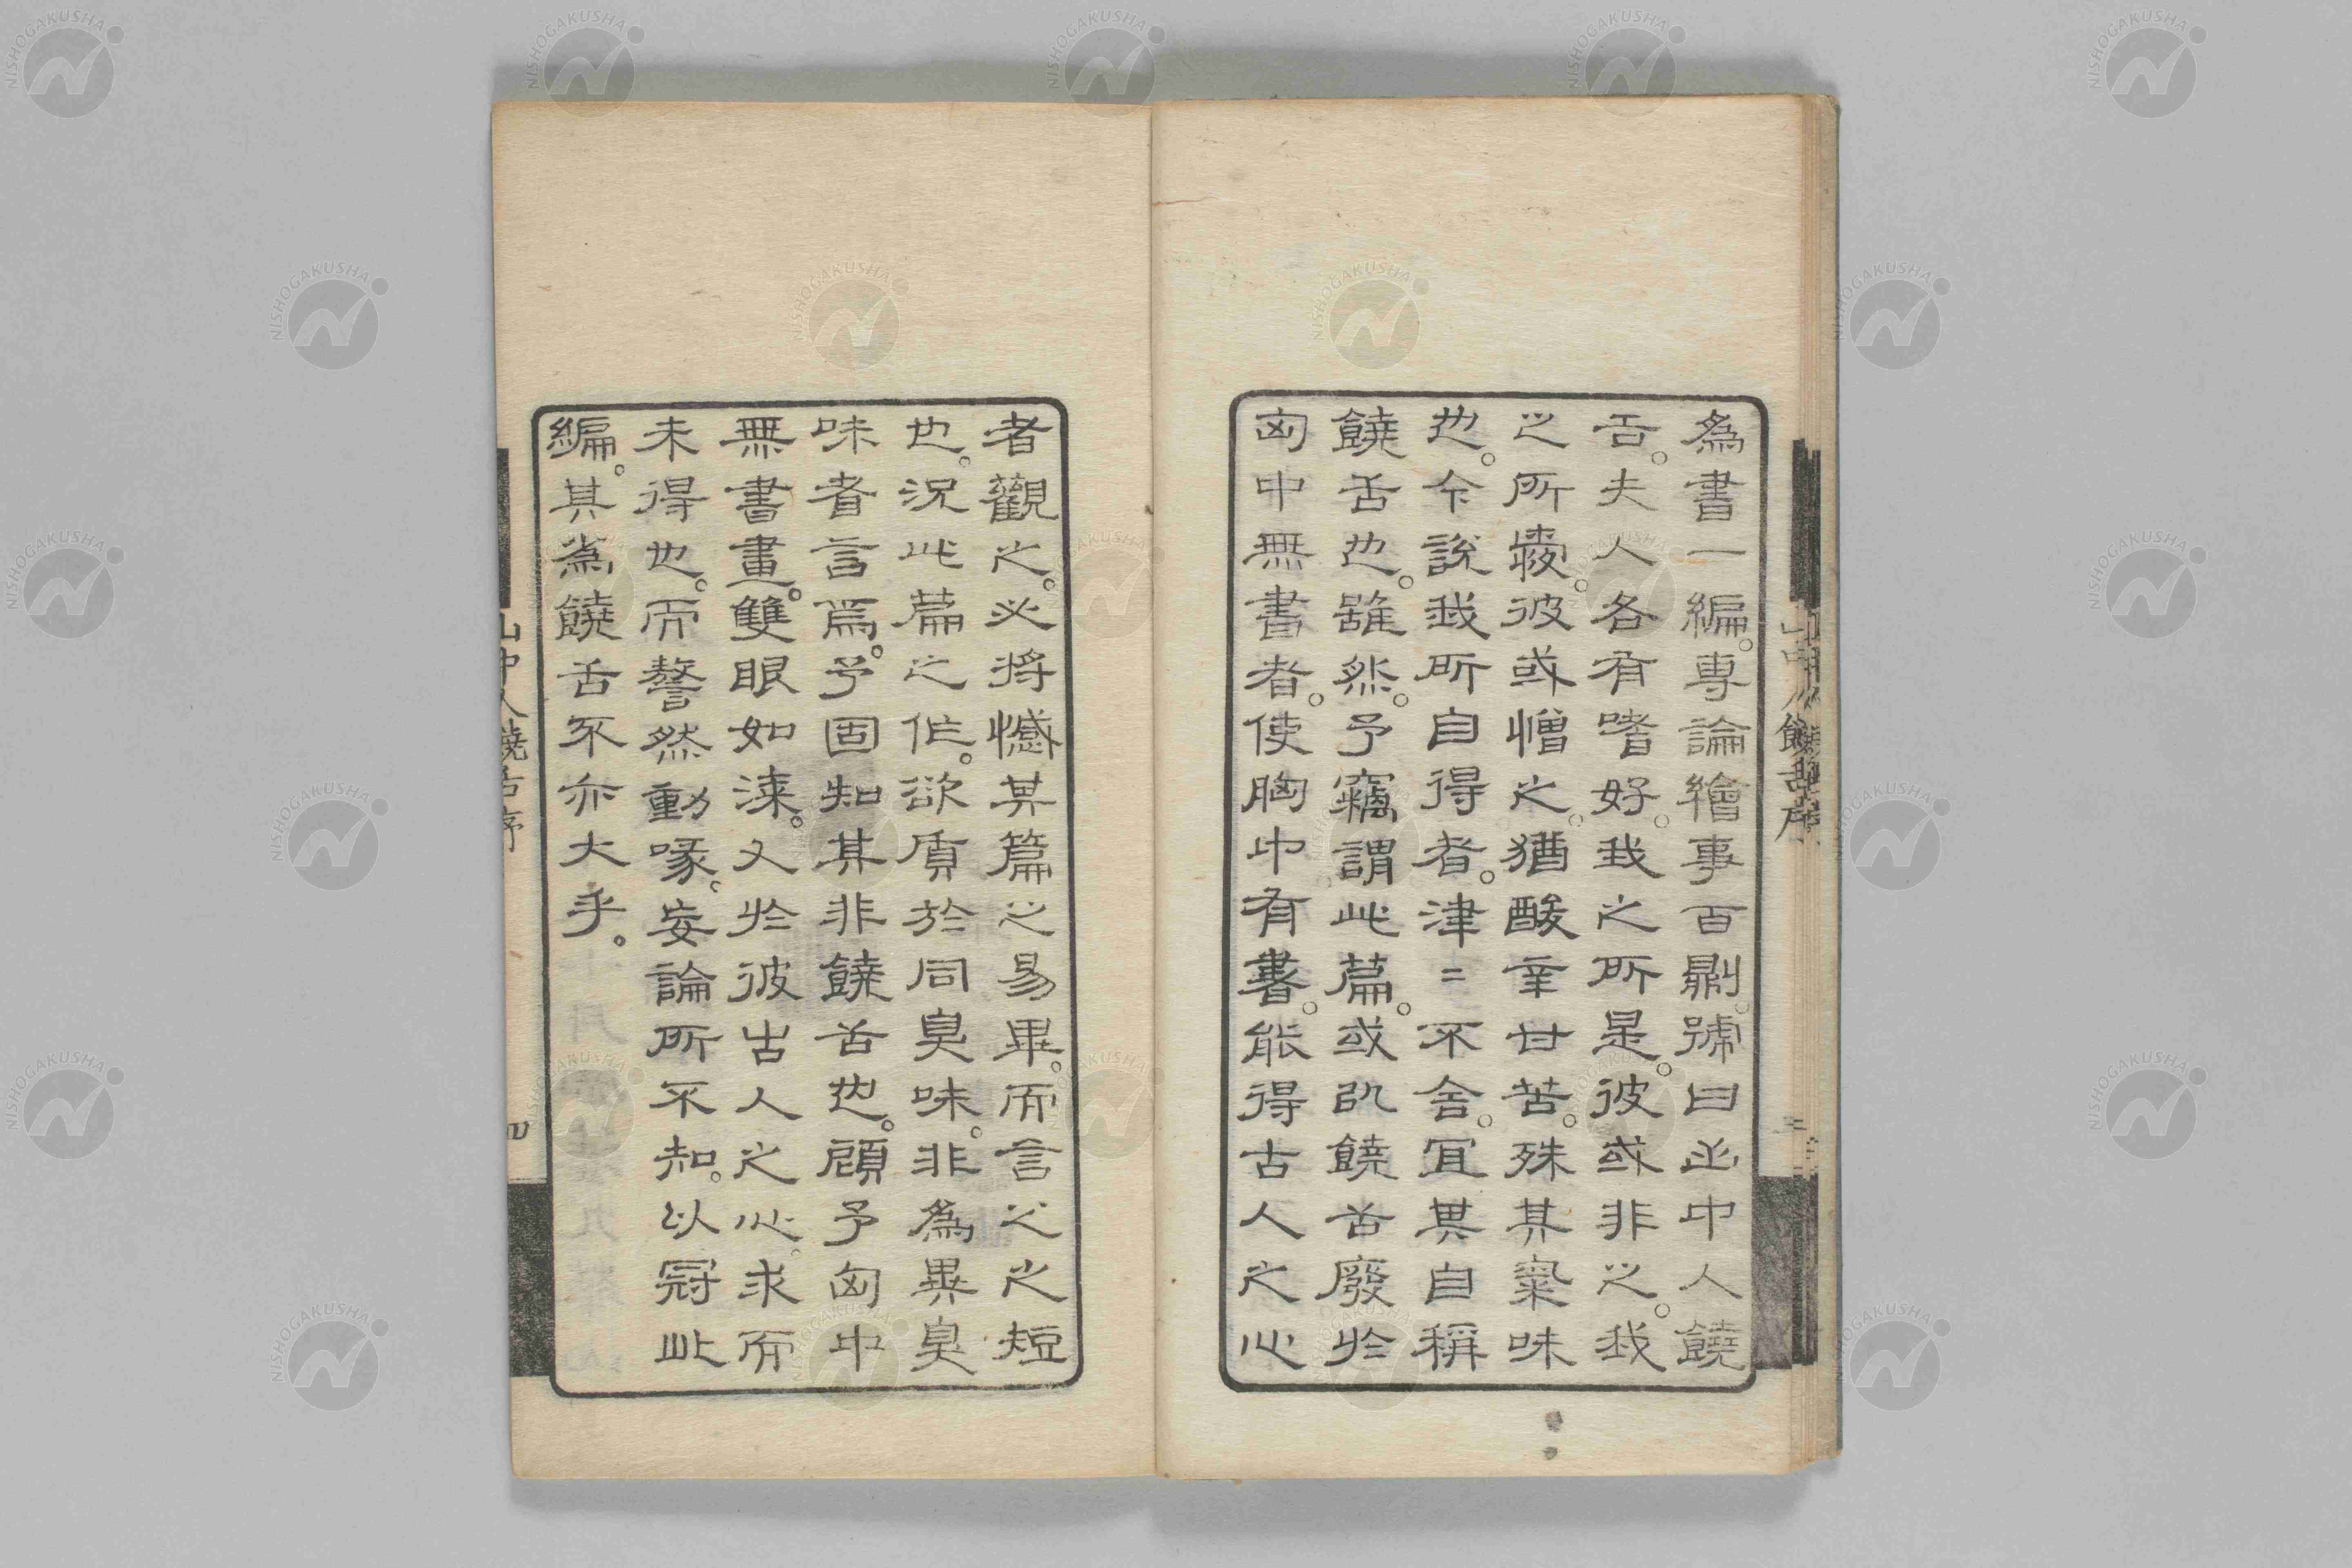 為書一編。專論繪事百劘。號曰山中人饒
舌。夫人各有嗜好。我之所是。彼或非之。我
之所愛。彼或憎之。猶酸辛甘苦。殊其氣味
也。今說我所自得者。津〻不舍。宜其自稱
饒舌也。雖然。予竊謂此篇。或以饒舌廢於
匈中無書者。使胸中有書。能得古人之心
者觀之。必將憾其篇之易畢。而言之之短
也。況此篇之作。欲質於同臭味。非為異臭
味者言焉。予固知其非饒舌也。顧予匈中
無書畫。雙眼如漆。又於彼古人之心。求而
未得也。而謷然動喙。妄論所不知。以冠此
編。其為饒舌不亦大乎。
山中人饒舌序
四